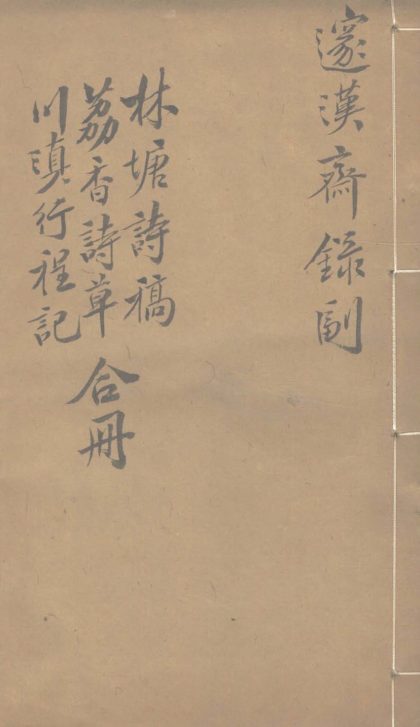 邃漢齋錄副
林塘詩稿
荔香詩草 合冊
川滇行程記